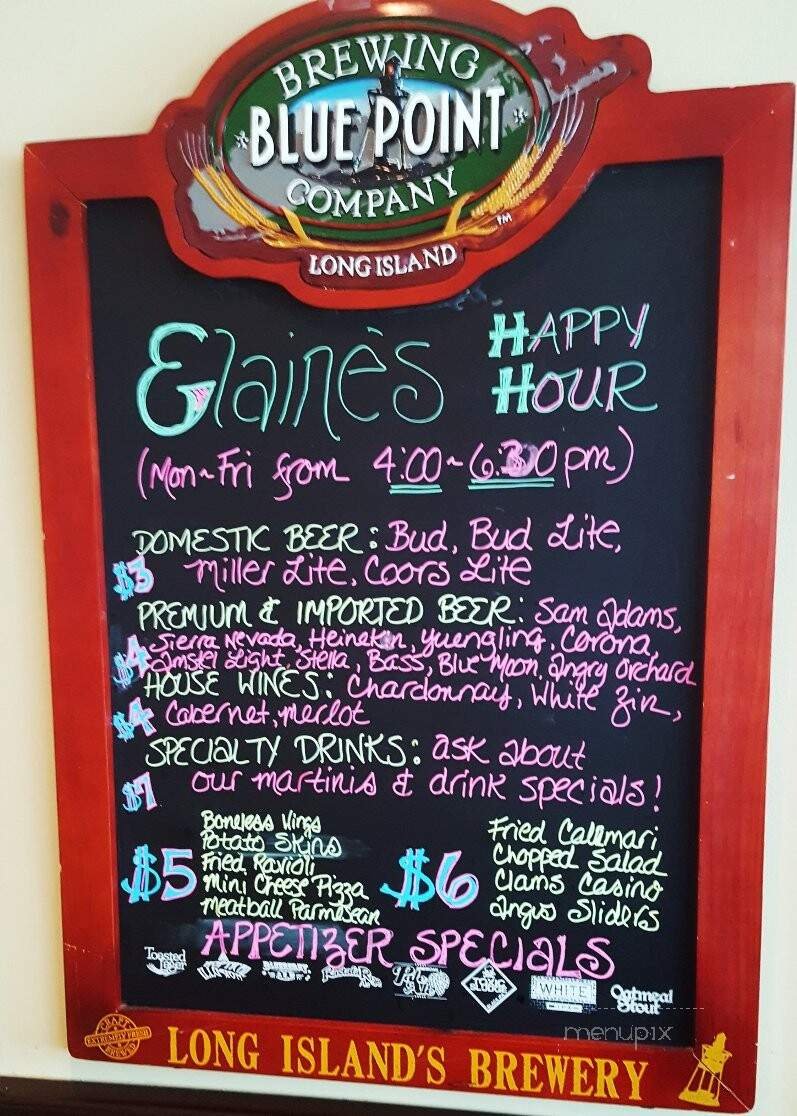 BREWING
BLUE POINT
COMPANY
TM
LONG ISLAND
Elaine's HAPPY HOUR
(Mon~Fri from 4:00~6:30pm)
DOMESTIC BEER: Bud, Bud Lite,
$3 Miller Lite, Coors Lite
PREMIUM & IMPORTED BEER: Sam Adams,
$4 Sierra Nevada, Heineken, Yuengling, Corona,
Amstel Light, Stella, Bass, Blue Moon, Angry Orchard
HOUSE WINES: Chardonnay, White Zin,
$4 Cabernet, Merlot
SPECIALTY DRINKS: ask about
$7 our martinis & drink specials!
$5
Boneless Wings
Potato Skins
Fried Ravioli
Mini Cheese Pizza
Meatball Parmesean
$6
Fried Calamari
Chopped Salad
Clams Casino
Angus Sliders
APPETIZER SPECIALS
Toasted Lager
BLUEBERRY ALE
WHITE
Oatmeal Stout
menupix
CRAFT BREWED
EXTREMELY FRESH
LONG ISLAND'S BREWERY